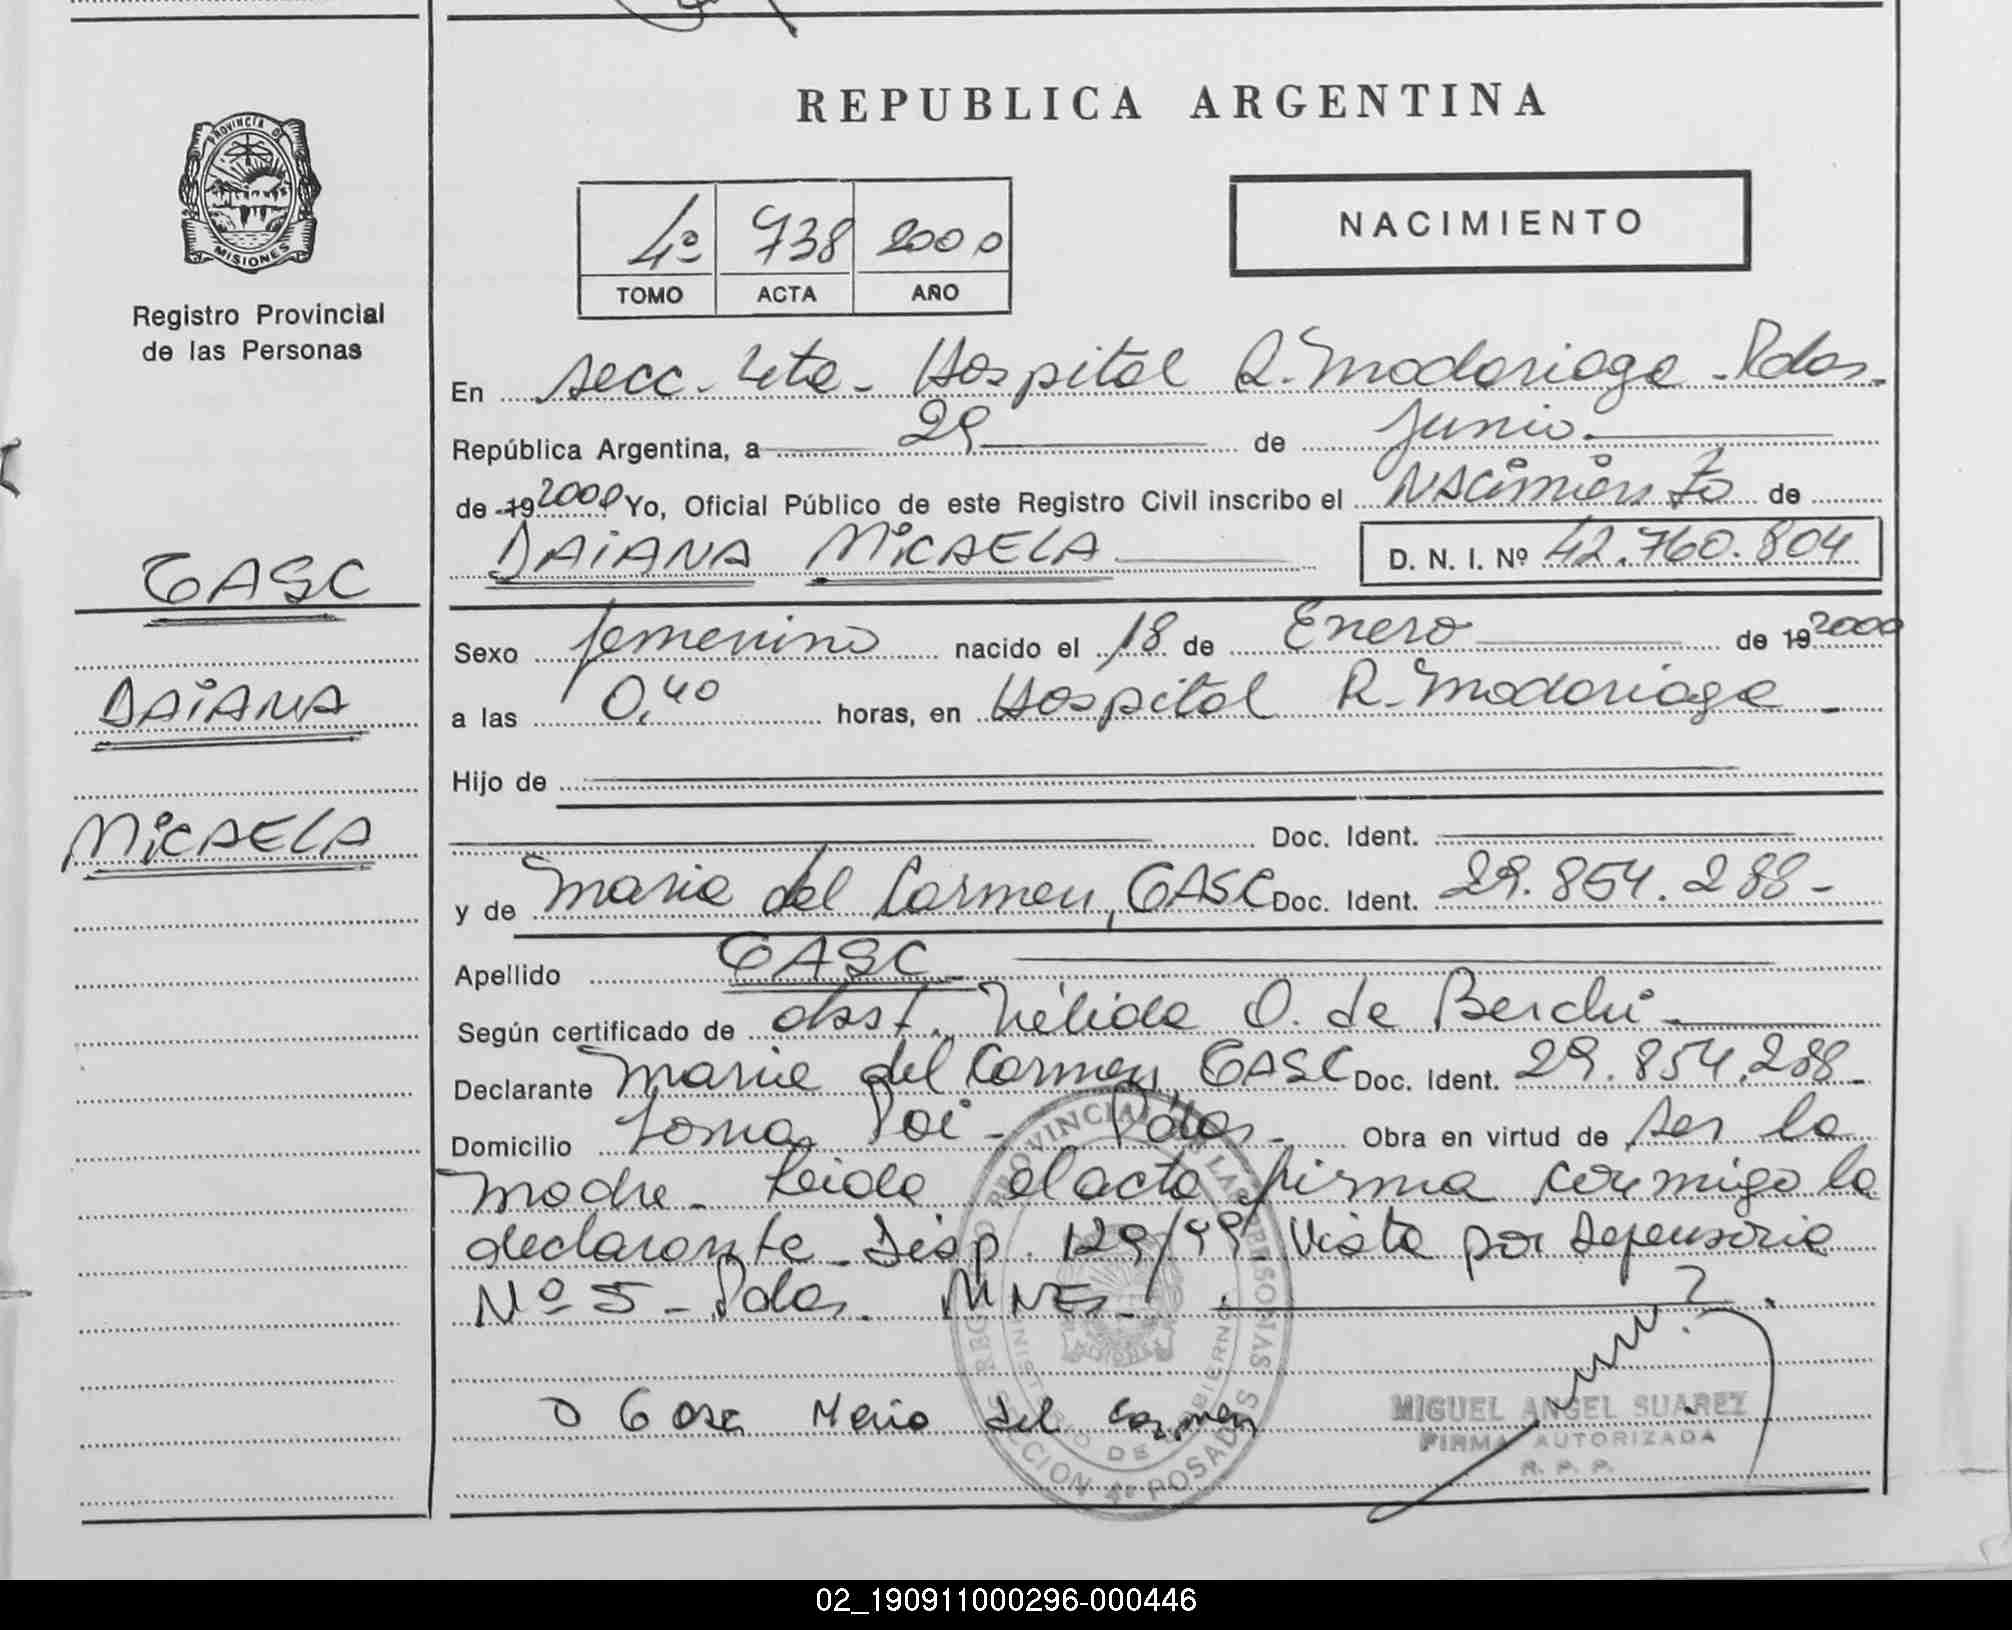 REPUBLICA ARGENTINA
PROVINCIA DE
MISIONES
Registro Provincial
de las Personas
4º 738 2000
TOMO ACTA AÑO
NACIMIENTO
En secc. 4ta - Hospital R. Madariaga - Pdas.
República Argentina, a 29 de Junio
de 19 2000 Yo, Oficial Público de este Registro Civil inscribo el Nacimiento de
DAIANA MICAELA D. N. I. Nº 42.760.804
GASC
DAIANA
MICAELA
Sexo femenino nacido el 18 de Enero de 19 2000
a las 0,40 horas, en Hospital R. Madariaga -
Hijo de
Doc. Ident.
y de Maria del Carmen, GASC Doc. Ident. 29.854.288-
Apellido GASC
Según certificado de obst. Nélida O. de Berchi
Declarante Maria del Carmen GASC Doc. Ident. 29.854.288
Domicilio Loma Poi - Pdas. Obra en virtud de ser la
madre - Leida el acta firma conmigo la
declarante Disp. 129/99 Vista por Defensoria
Nº 5 - Pdas. MNES.
Gasc Maria del Carmen
REGISTRO PROVINCIAL DE LAS PERSONAS
MINISTERIO DE GOBIERNO
SECCION 4º POSADAS
MIGUEL ANGEL SUAREZ
FIRMA AUTORIZADA
R. P. P.
02_190911000296-000446